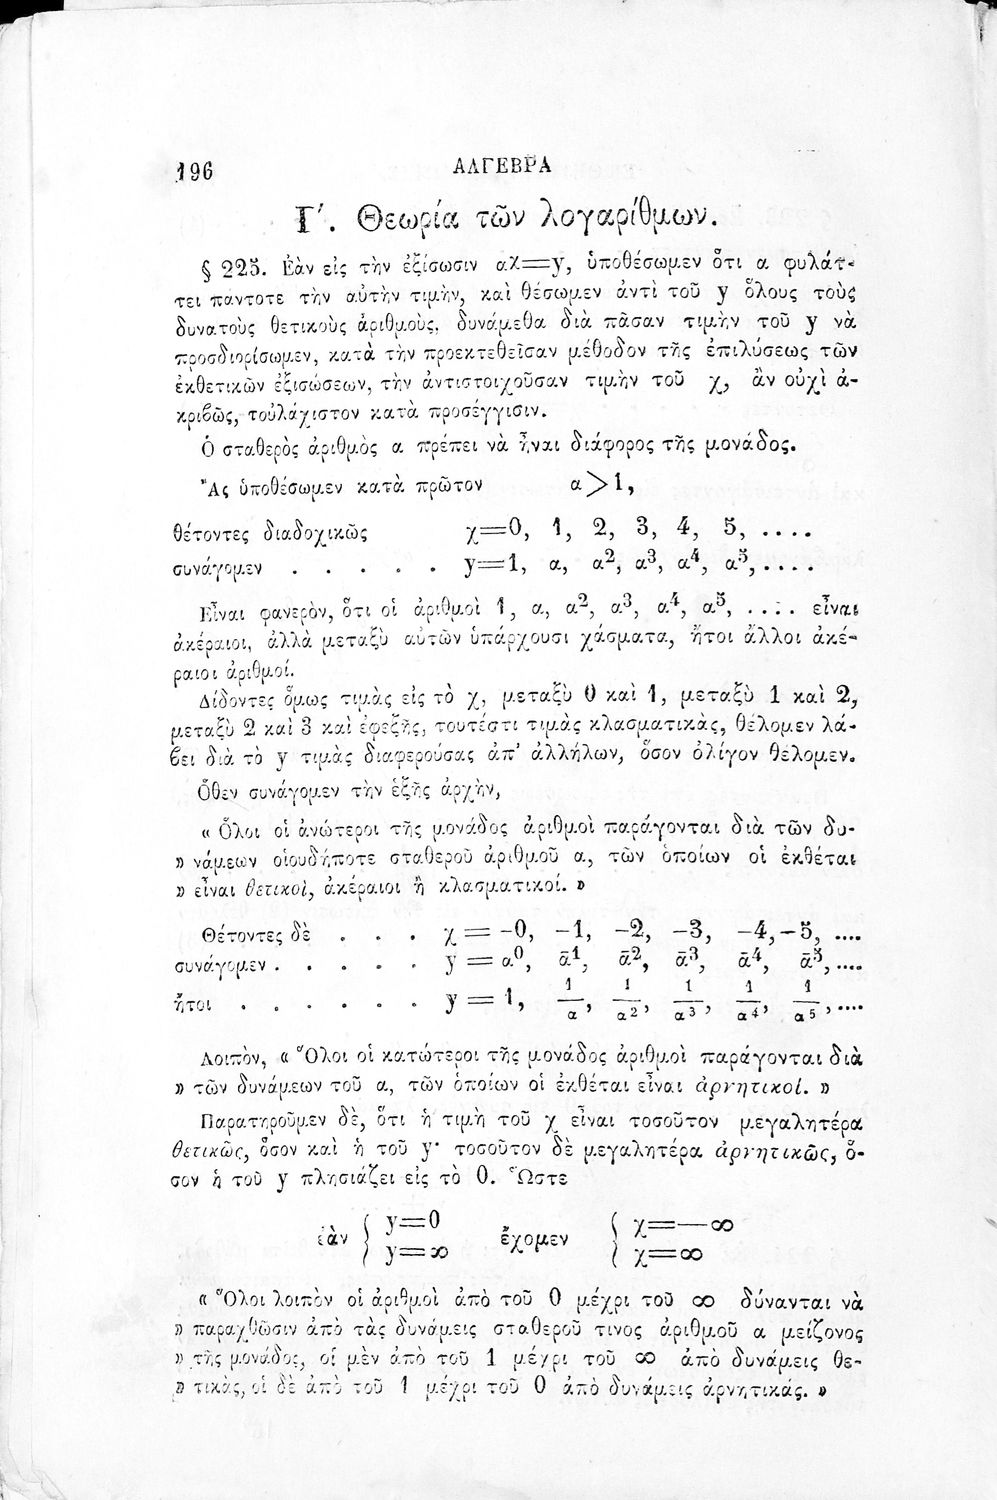 196
ΑΛΓΕΒΡΑ
Γ′. Θεωρία τῶν λογαρίθμων.
§ 225. Ἐὰν εἰς τὴν ἐξίσωσιν αχ=y, ὑποθέσωμεν ὅτι α φυλάτ-
τει παντοτε τὴν αὐτὴν τιμὴν, καὶ θέσωμεν ἀντὶ τοῦ y ὅλους τοὺς
δυνατοὺς θετικοὺς ἀριθμοὺς, δυνάμεθα διὰ πᾶσαν τιμὴν τοῦ y νὰ
προσδιορίσωμεν, κατὰ τὴν προεκτεθεῖσαν μέθοδον τῆς ἐπιλύσεως τῶν
ἐκθετικῶν ἐξισώσεων, τὴν ἀντιστοιχοῦσαν τιμὴν τοῦ χ, ἂν οὐχὶ ἀ-
κριβῶς, τοὐλάχιστον κατὰ προσέγγισιν.
Ὁ σταθερὸς ἀριθμὸς α πρέπει νὰ ἦναι διάφορος τῆς μονάδος.
Ἂς ὑποθέσωμεν κατὰ πρῶτον α>1,
θέτοντες διαδοχικῶς χ=0, 1, 2, 3, 4, 5, ....
συνάγομεν . . . . . y=1, α, α², α³, α⁴, α⁵, ....
Εἶναι φανερὸν, ὅτι οἱ ἀριθμοὶ 1, α, α², α³, α⁴, α⁵, .... εἶναι
ἀκέραιοι, ἀλλὰ μεταξὺ αὐτῶν ὑπάρχουσι χάσματα, ἤτοι ἄλλοι ἀκέ-
ραιοι ἀριθμοί.
Δίδοντες ὅμως τιμὰς εἰς τὸ χ, μεταξὺ 0 καὶ 1, μεταξὺ 1 καὶ 2,
μεταξὺ 2 καὶ 3 καὶ ἐφεξῆς, τουτέστι τιμὰς κλασματικὰς, θέλομεν λά-
βει διὰ τὸ y τιμὰς διαφερούσας ἀπ' ἀλλήλων, ὅσον ὀλίγον θελομεν.
Ὅθεν συνάγομεν τὴν ἑξῆς ἀρχὴν,
« Ὅλοι οἱ ἀνώτεροι τῆς μονάδος ἀριθμοὶ παράγονται διὰ τῶν δυ-
» νάμεων οἱουδήποτε σταθεροῦ ἀριθμοῦ α, τῶν ὁποίων οἱ ἐκθέται
» εἶναι θετικοὶ, ἀκέραιοι ἢ κλασματικοί. »
Θέτοντες δὲ . . . χ = -0, -1, -2, -3, -4, -5, ....
συνάγομεν . . . . . . y = α⁰, ᾱ¹, ᾱ², ᾱ³, ᾱ⁴, ᾱ⁵, ....
ἤτοι . . . . . . y = 1, 1/α, 1/α², 1/α³, 1/α⁴, 1/α⁵, ....
Λοιπὸν, « Ὅλοι οἱ κατώτεροι τῆς μονάδος ἀριθμοὶ παράγονται διὰ
» τῶν δυνάμεων τοῦ α, τῶν ὁποίων οἱ ἐκθέται εἶναι ἀρνητικοί. »
Παρατηροῦμεν δὲ, ὅτι ἡ τιμὴ τοῦ χ εἶναι τοσοῦτον μεγαλητέρα
θετικῶς, ὅσον καὶ ἡ τοῦ y· τοσοῦτον δὲ μεγαλητέρα ἀρνητικῶς, ὅ-
σον ἡ τοῦ y πλησιάζει εἰς τὸ 0. Ὥστε
ἐὰν { y=0 ἔχομεν { χ=—∞
y=∞ χ=∞
« Ὅλοι λοιπὸν οἱ ἀριθμοὶ ἀπὸ τοῦ 0 μέχρι τοῦ ∞ δύνανται νὰ
» παραχθῶσιν ἀπὸ τὰς δυνάμεις σταθεροῦ τινος ἀριθμοῦ α μείζονος
» τῆς μονάδος, οἱ μὲν ἀπὸ τοῦ 1 μέχρι τοῦ ∞ ἀπὸ δυνάμεις θε-
» τικὰς, οἱ δὲ ἀπὸ τοῦ 1 μέχρι τοῦ 0 ἀπὸ δυνάμεις ἀρνητικάς. »